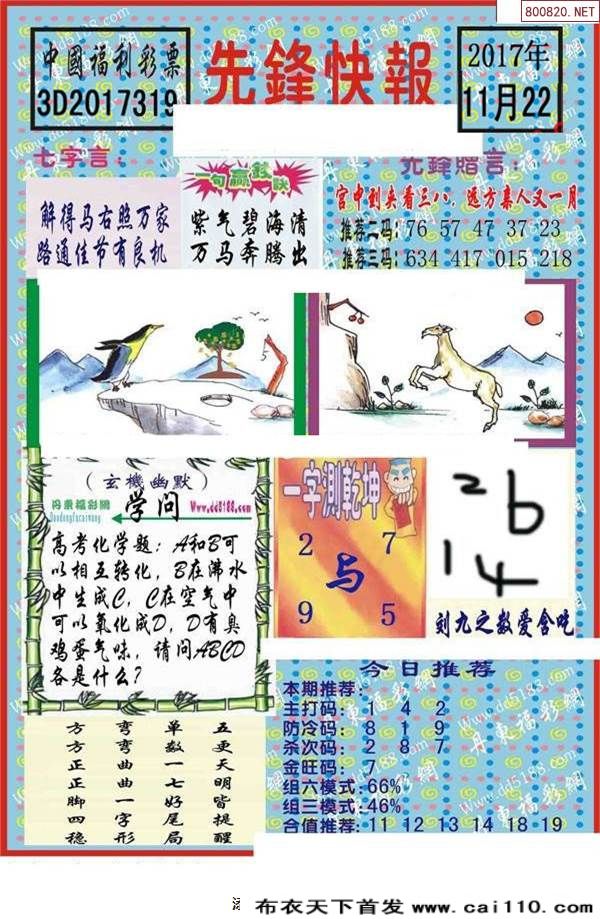 800820.NET
中國福利彩票
3D2017319
先鋒快報
2017年
11月22
七字言:
解得马右照万家
路通佳节有良机
一句赢錢訣
紫气碧海清
万马奔腾出
先鋒贈言:
宫中刺夹看三八，远方亲人又一月
推荐二码: 76 57 47 37 23
推荐三码: 634 417 015 218
(玄機幽默)
丹東福彩網
Dandongfucaiwang
学问
Www.dd5188.com
高考化学题：A和B可
以相互转化，B在沸水
中生成C，C在空气中
可以氧化成D，D有臭
鸡蛋气味，请问ABCD
各是什么?
一字測乾坤
2 7
与
9 5
26
14
刻九之数爱含吃
五更天明皆提醒
单数一七好尾局
弯弯曲曲一字形
方方正正脚四稳
今日推荐
本期推荐:
主打码: 1 4 2
防冷码: 8 1 9
杀次码: 2 8 7
金旺码: 7
组六模式: 66%
组三模式: 46%
合值推荐: 11 12 13 14 18 19
布衣天下首发 www.cai110.com